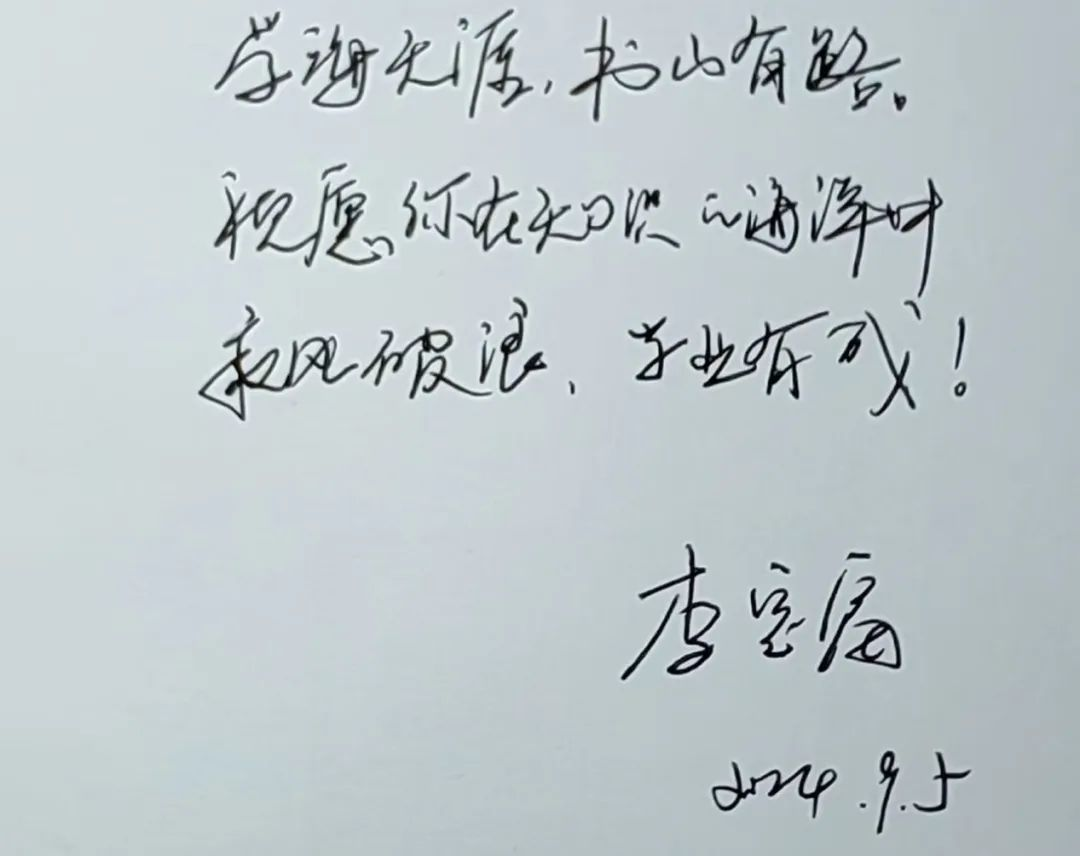 学海无涯，书山有路。
祝愿你在知识的海洋中
乘风破浪，学业有成！
李
2024.9.5